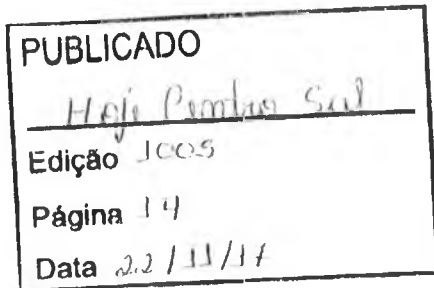 PUBLICADO
Hoje Centro Sul
Edição 1005
Página 14
Data 22/11/17